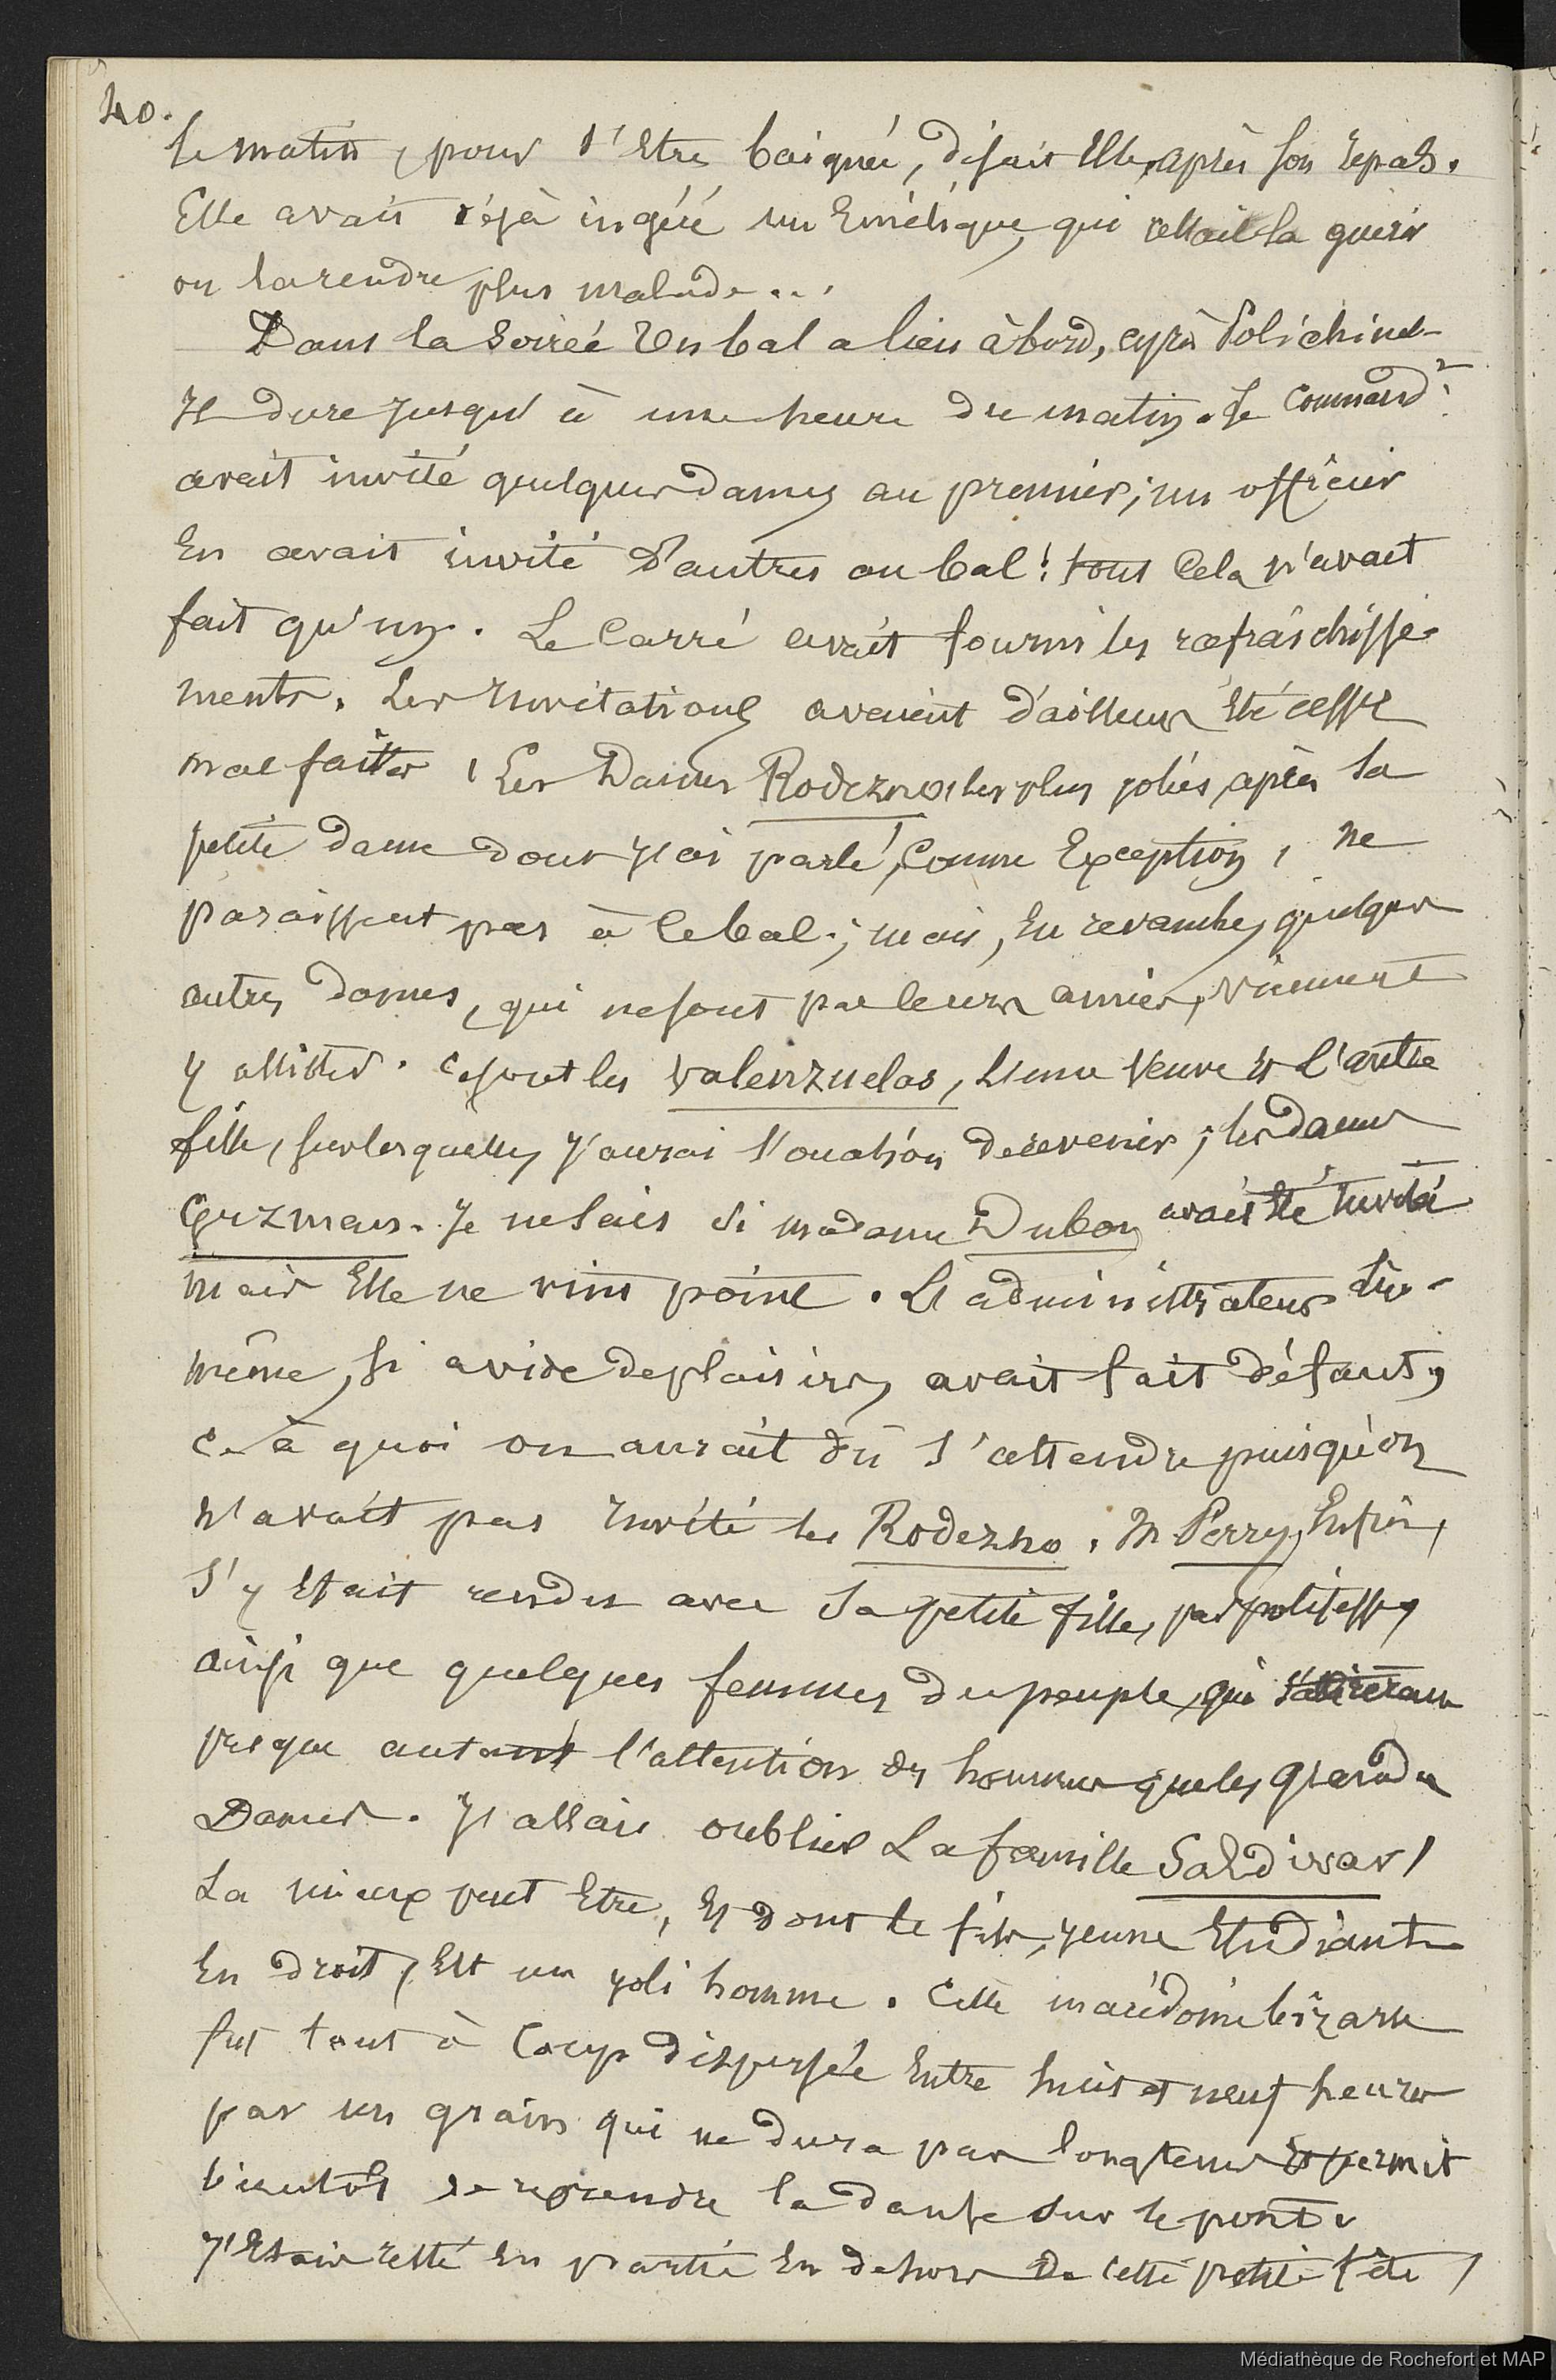 40.
le matin, pour s'être baignée, disait elle, après son repas.
Elle avait déjà ingéré un Emétique, qui allait la guérir
ou la rendre plus malade...
Dans la soirée Un bal a lieu à bord, après Polichinel-
Il dure jusqu'à une heure du matin. Le Command.t
avait invité quelques dames au premier; un officier
En avait invité d'autres au bal! tout Cela n'avait
fait qu'un. Le Carré avait fourni les rafraîchisse-
ments. Les Invitations avaient d'ailleurs été assez
mal faites, Les Dames Rodezno, les plus jolies, après la
petite dame dont j'ai parlé, Comme Exception, ne
paraissent pas à Ce bal; mais, En revanche, quelques
autres dames, qui ne sont pas leurs amies, viennent
y assister. Ce sont les Valenzuelas, L'une Veuve et l'autre
fille, sur lesquelles j'aurai l'occasion de revenir; les dames
Guzman. Je ne sais si madame Dubon avait été Invitée
mais Elle ne vint point. L'administrateur lui-
même, si avide de plaisirs, avait fait défaut,
Ce à quoi on aurait dû s'attendre puisqu'on
n'avait pas Invité les Rodezno. M Perry, Enfin,
s'y Etait rendu avec sa petite fille, par politesse,
ainsi que quelques femmes du peuple, qui attirèrent
presque autant l'attention des hommes que les grandes
Dames. J'allais oublier La famille Saldivar,
La mieux peut Etre, Et dont le fils, jeune Etudiant
En droit, Est un joli homme. Cette macédoine bizarre
fut tout à Coup dispersée Entre huit et neuf heures
par un grain qui ne dura pas longtems Et permit
bientôt de reprendre la danse sur le pont.
J'Etais resté En partie En dehors de cette petite fête,
Médiathèque de Rochefort et MAP